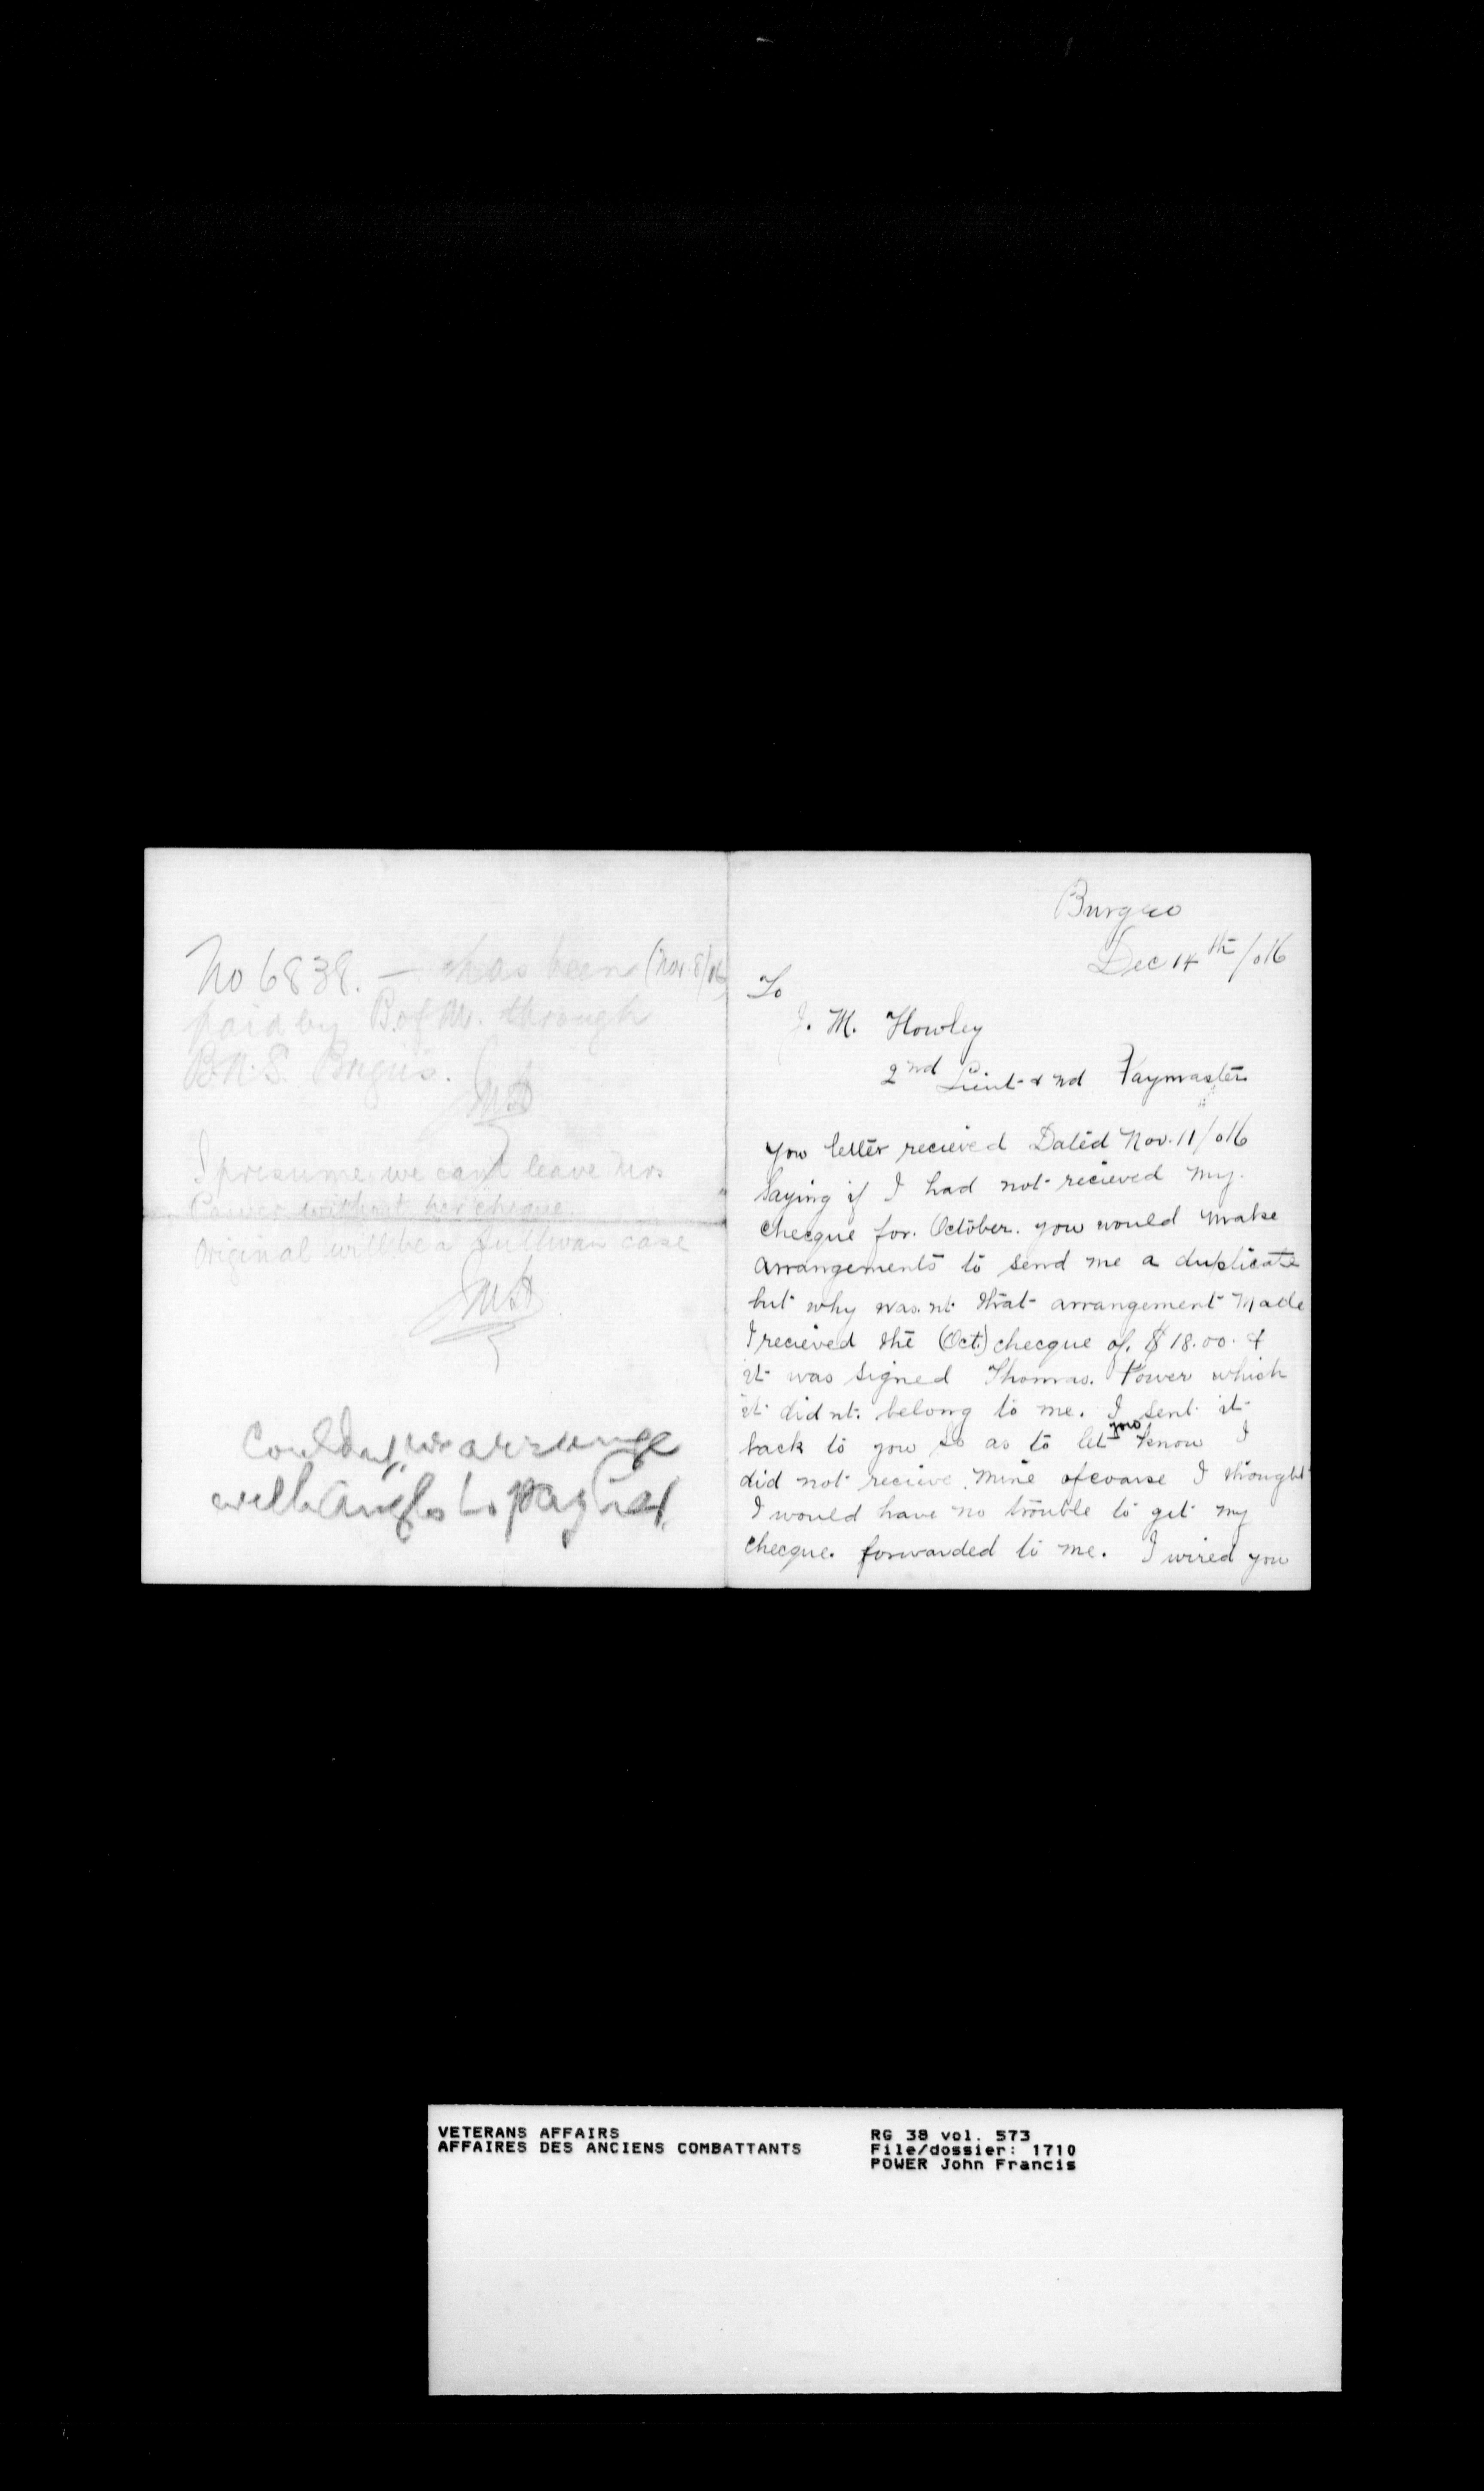 No 6838. — has been (Nov. 8/16)
paid by B. of M. through
B.N.S. Brigus.
JMH
I presume we can't leave Mrs
Power without her cheque.
Original will be a Sullivan case
JMH
Couldnt we arrange
with Anglo to pay her.
Burgeo
Dec 14th/016
To
J. M. Howley
2nd Lieut & nd Paymaster
You letter recieved Dated Nov. 11/016
Saying if I had not recieved my
checque for. October. you would make
arrangements to send me a duplicate
but why was.nt. that arrangement Made
I recieved the (Oct.) checque of. $18.00. &
it was signed Thomas. Power which
it did nt. belong to me. I sent it
back to you so as to let you know I
did not recieve. mine ofcourse I thought
I would have no trouble to get my
checque. forwarded to me. I wired you
VETERANS AFFAIRS
AFFAIRES DES ANCIENS COMBATTANTS
RG 38 vol. 573
File/dossier: 1710
POWER John Francis